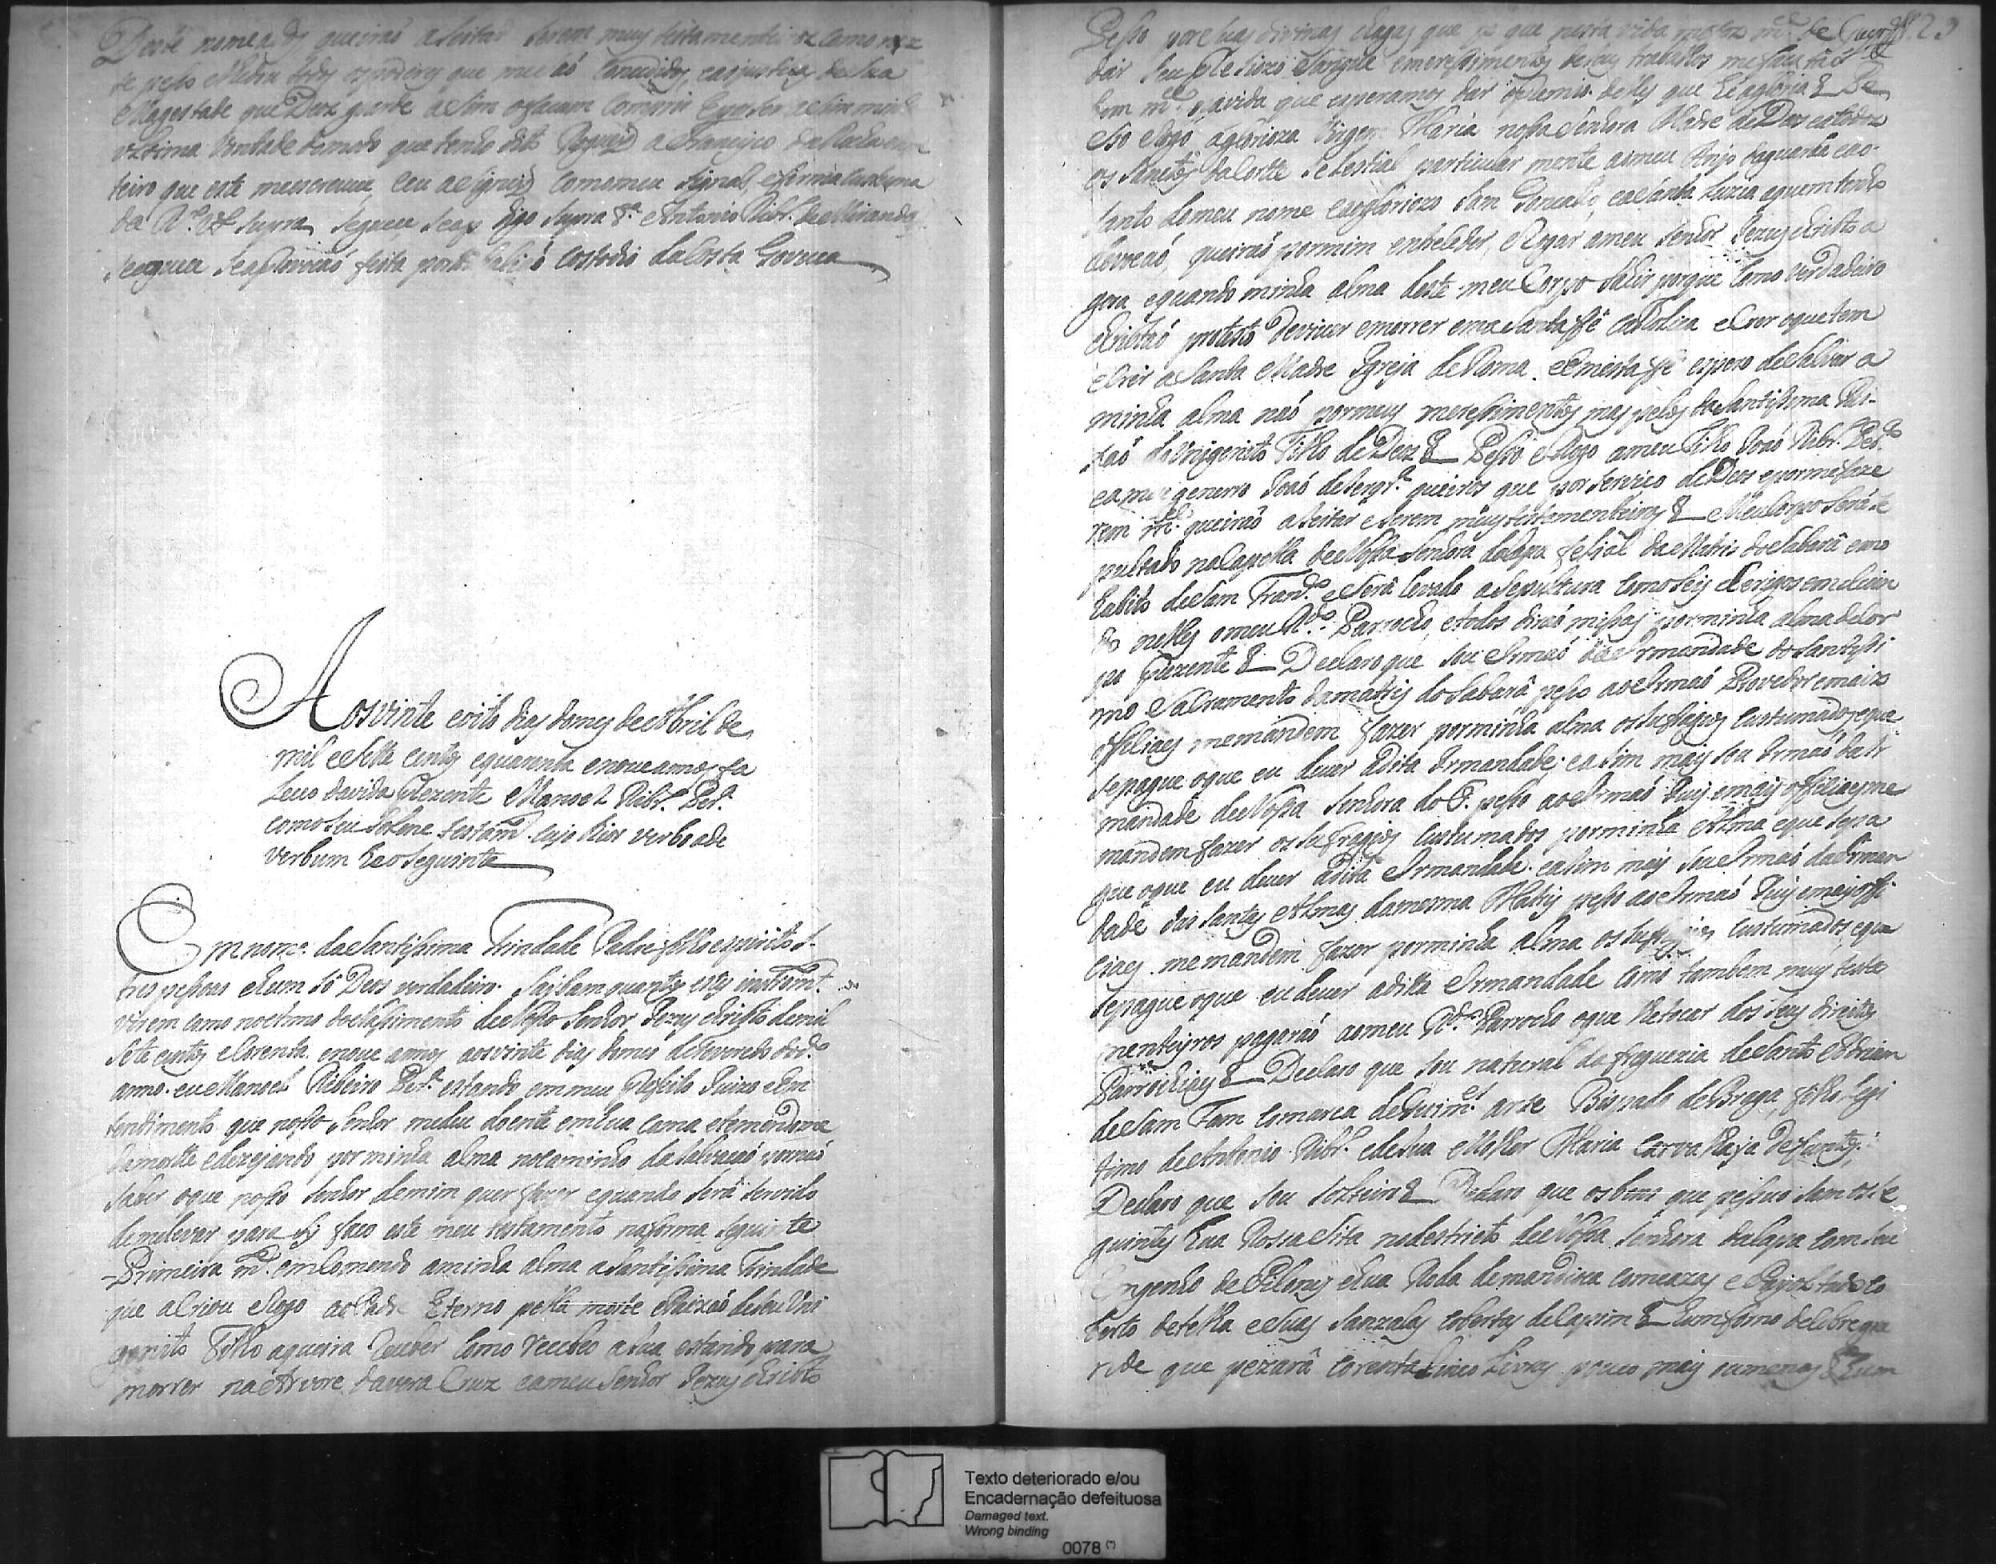 nomeados queiraó aseitar serem muy testamenteiros como
te pesso todos os poderes que me saó consedidos, eajustiça desua
Magestade que Deoz guarde asim ofacam Comprir
vltima Vontade demodo que tendo dito Roguei a Francisco da
teiro que este mescreveu, eeu asignei Comomeu signal, eforma custuma
da Supra Segueu digo Supra Antonio Ribr.º de Miranda
Seapruvaçaó feita por Custodio daCosta Gouvea
Aosvinte eoito dias domes de Abril de
mil eSette Centos equarenta enoveannos fa
Leceo davida Prezente Manoel Ribr.º Per.ª
comoseu Solene testam.to cujo thior verboade
verbum heoSeguinte
Em nome daSantissima Trindade Padre filho espirito S.
tres pessoas ehum só Deos verdadeiro. Saibam quantos este instrum.to
virem como noAnno doNassimento deNosso Senhor Jezus Christo demil
Sete centos eCorenta enove annos aosvinte dias domes deFevereiro dod.º
anno. eu Manoel Ribeiro Per.ª estando emmeu Perfeito Juizo eEn
tendimento que nosso Senhor medeu doente emhua cama etemendome
damortte edezejando por minha alma nocaminho daSalvaçaó
saber oque nosso Senhor demim quer fazer equando Será Servido
demelevar para Sy faço este meu testamento naforma Seguinte
Primeira m.te emComendo aminha alma aSantissima Trindade
que aCriou eRogo aoPadre Eterno pella morte ePaixaó deseu Uni
genito Filho aqueira Receber Como Recebeo asua estando para
morrer naArvore daVera Cruz eameu Senhor Jezus Christo
Pesso por suas divinas chagas que já que nesta vida mefez m.ce de
dar Seu preSiozo Sangue emeressimentos deseus trabalhos mefaça
bem m.ce navida que esperamos dar opremio delles que heagloria &
eRogo agloriosa Virgem Maria nossaSenhora Madre deDeos eatodos
os Santos daCortte Selestial particular mente aomeu Anjo daguarda eao
Santo domeu nome eaoglariozo Sam Gonçalo, eaSanta Luzia aquem tenho
devoçaó, queiraó pormim enterceder, eRogar ameu Senhor Jezus Christo a
gora equando minha alma deste meu Corpo sahir porque Como verdadeiro
Christaó protesto deviver emorrer emaSanta ffé Catholica eCrer oquetem
eCrê a Santa Madre Igreja deRoma. eEmesta ffé espero deSalvar a
minha alma naó pormeus meressimentos mas pelos daSantissima Pai
xaó doUnigenito Filho deDeoz & Pesso eRogo ameu Filho Joaó Ribr.º Per.ª
eameu genrro Joaó deSerq.ra queirós que por Serviço deDeos epormefaze
rem m.ce queiraó aSeitar eSerem meus testamenteiros & Meu Corpo Será Se
pultado naCapella deNossa Senhora daLapa fellial daMatris doSabará emo
habito deSam Fran.co eSerá levado aSepultura ComoSeis Clerigos emcluin
do nelles omeu R.do Parrocho, etodos diraó missas porminha alma deCor
po Prezente & Declaro que sou Irmaó daIrmandade doSantissi
mo Sacramento damatris doSabará pesso aoIrmaó Provedor emais
officiaes memandem fazer porminha alma osSufragios Custumados, eque
sepague oque eu dever adita Irmandade. easim mais sou Irmaó daIr
mandade deNossa Senhora do pesso aoIrmaó Juis emais officiaes me
mandem fazer osSufragios Custumados porminha Alma eque Sepa
gue oque eu dever adita Irmandade. easim mais Sou Irmaó daIrman
dade das Santas Almas damesma Matris pesso aoIrmaó Juis emais offi
ciaes memandem fazer porminha alma osSufragios Custumados eque
sepague oque eu dever adita Irmandade Como tambem meus testa
menteyros pagaráó aomeu R.do Parrocho oque Retocar dos Seus direitos
Parrochiais & Declaro que sou natural da freguezia deSanto Adriam
deSam Fam Comarca deGuim.es arse Bispado deBraga, filho legi
timo deAntonio Ribr.º edeSua Molher Maria Carvalhaja Defuntos;
Declaro que Sou Solteiro & Declaro que osbens que pessuo Sam osSe
guintes hua Rossa Sita nodestricto deNossa Senhora daLapa ComSeu
Engenho de Piloens ehua Roda demandioca comcazas e tudoCo
berto detelha eSuas Sanzalas Cobertas deCapim & hum forno deCobre gra
nde que pezará Corenta Livras pouco mais oumenos & hum
Texto deteriorado e/ou
Encadernação defeituosa
Damaged text.
Wrong binding
0078 (*)